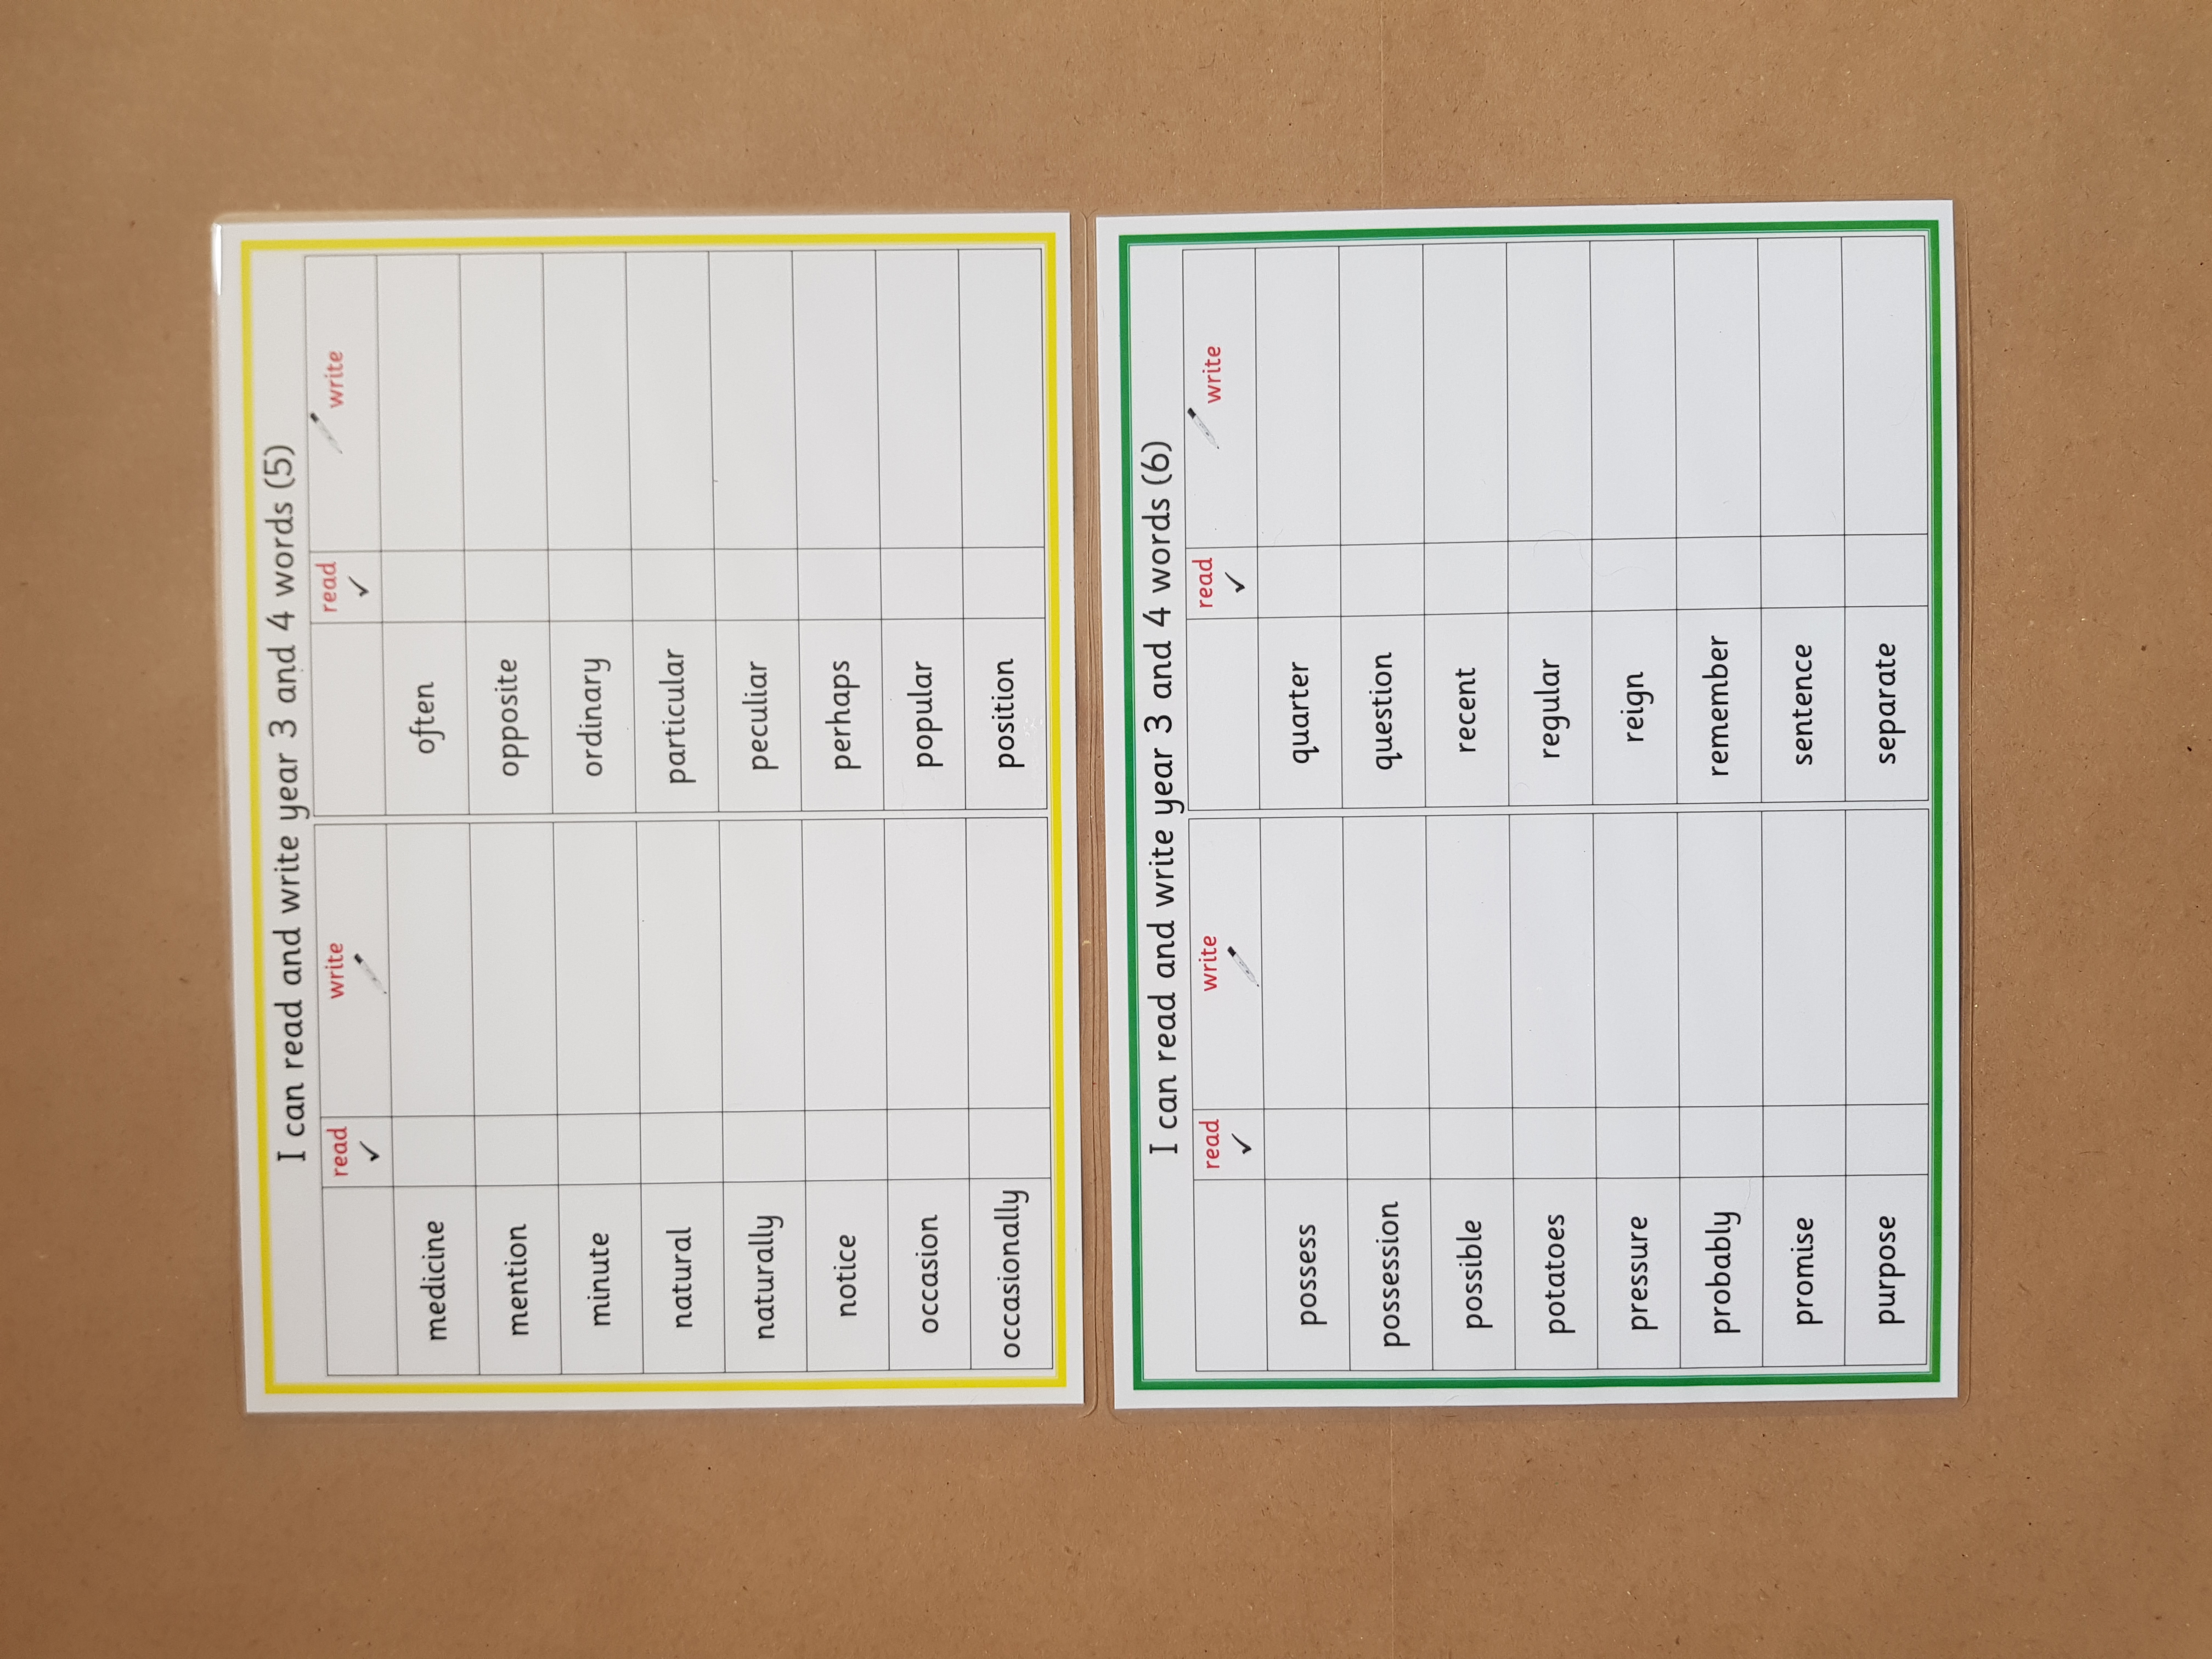 I can read and write year 3 and 4 words (5)
read write read write
medicine often
mention opposite
minute ordinary
natural particular
naturally peculiar
notice perhaps
occasion popular
occasionally position
I can read and write year 3 and 4 words (6)
read write read write
possess quarter
possession question
possible recent
potatoes regular
pressure reign
probably remember
promise sentence
purpose separate